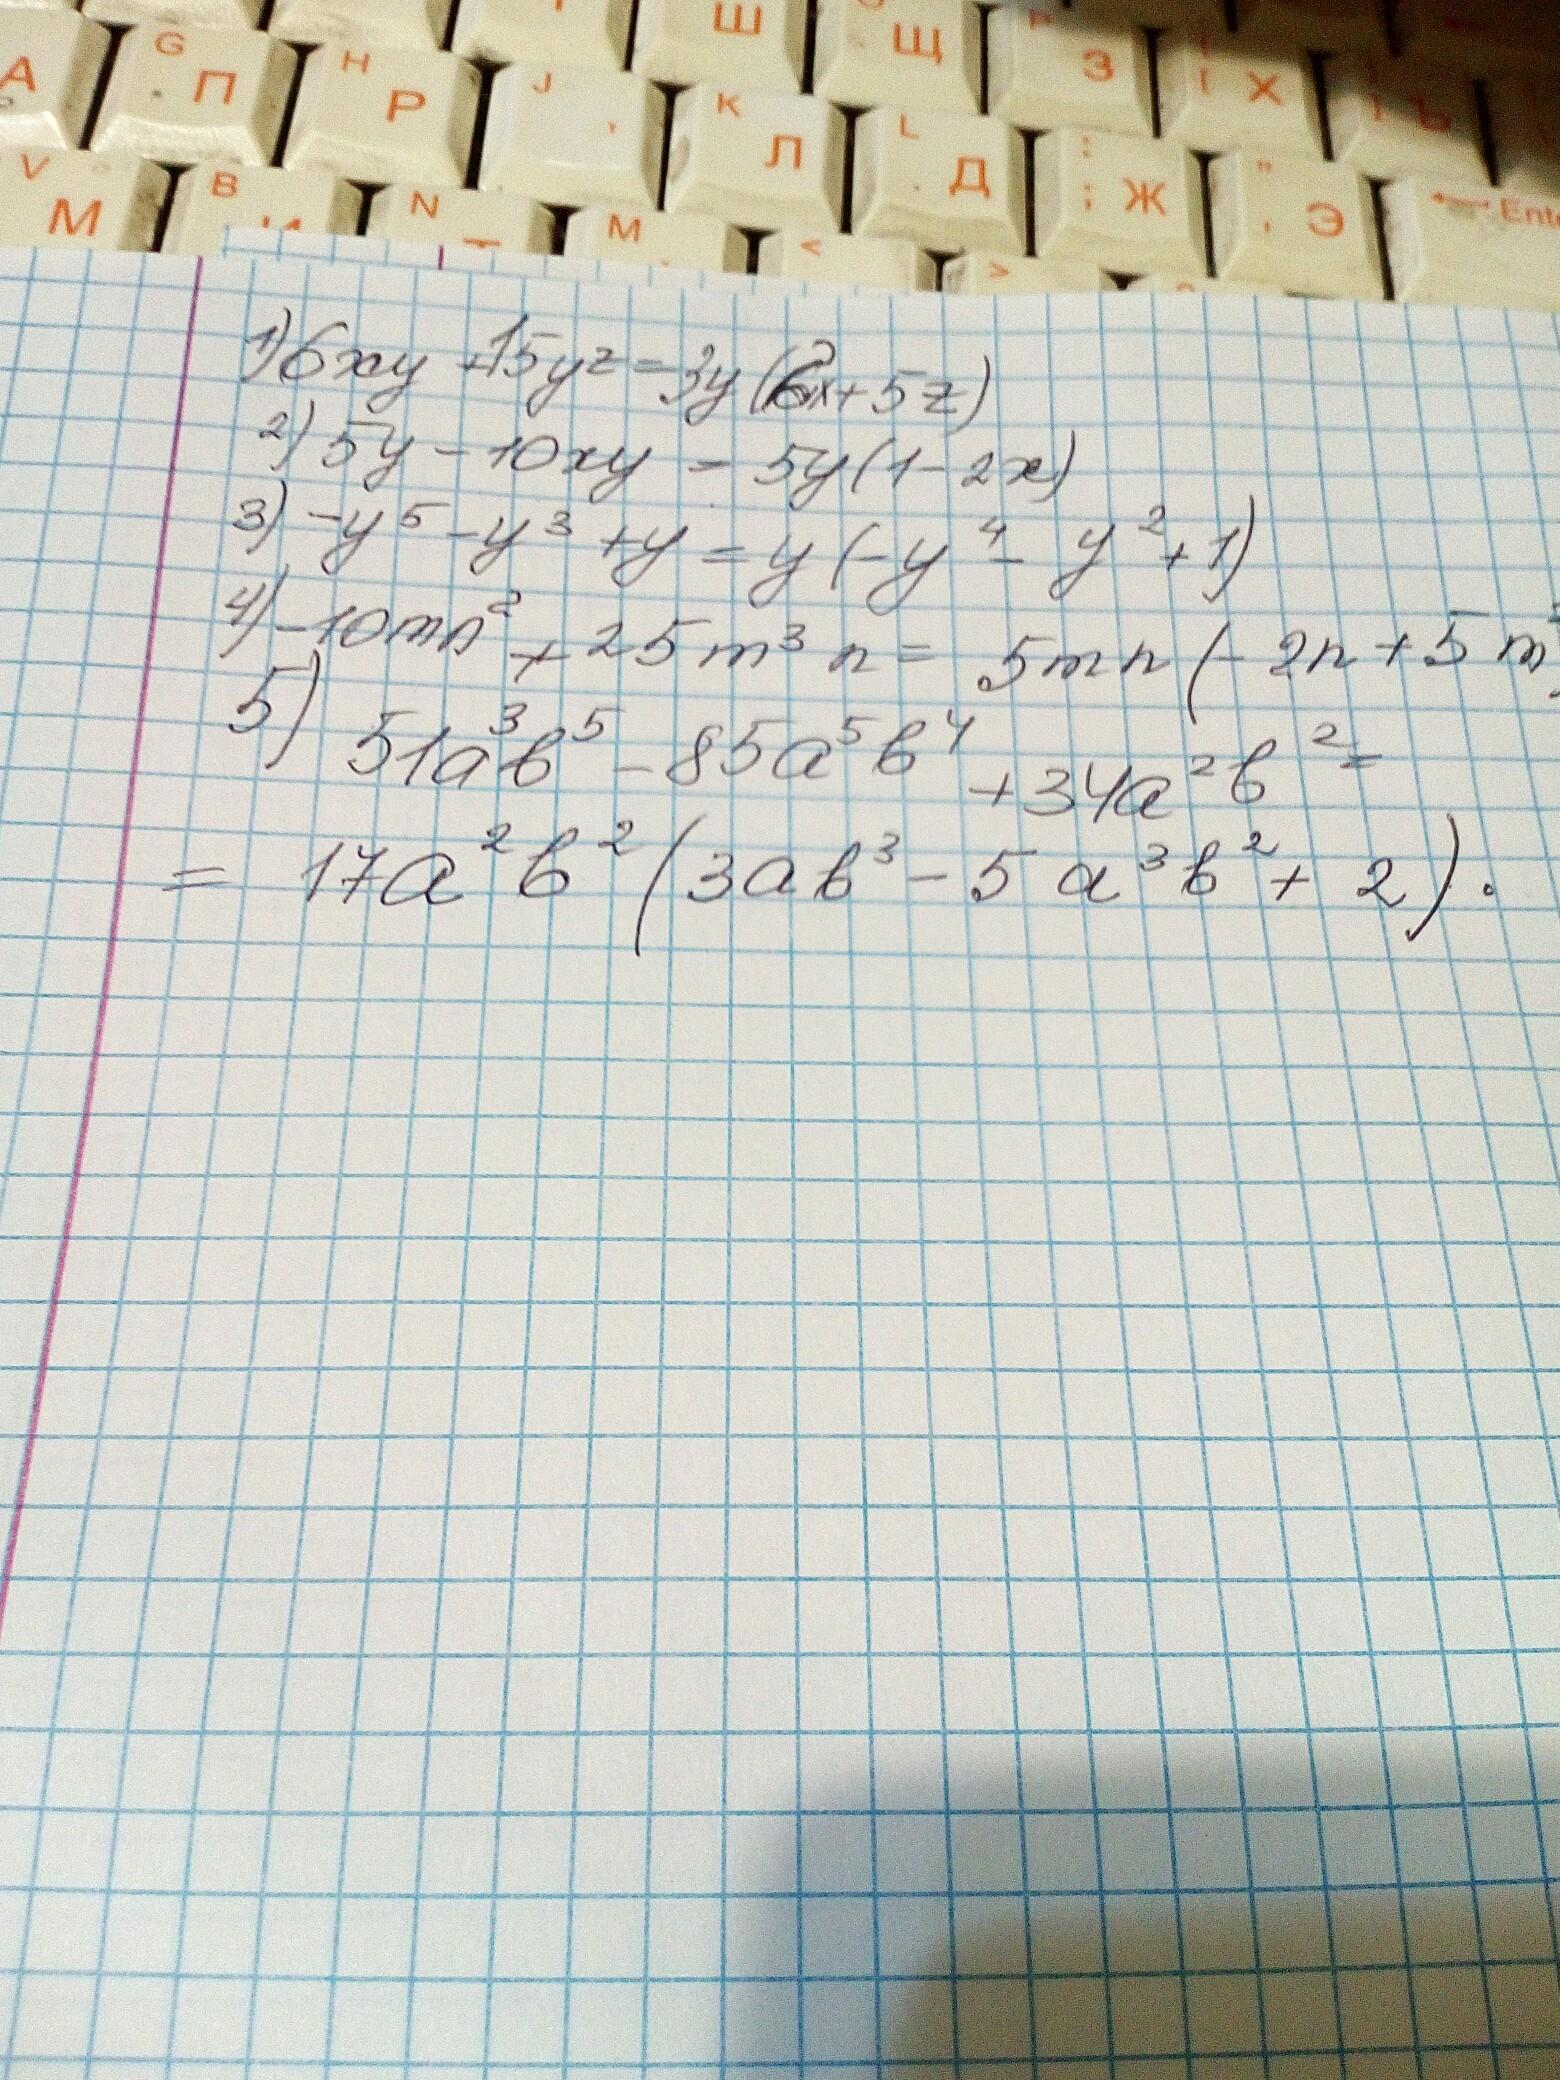 Ш Щ З Х Ъ
А G П H Р J K Л L Д : ; Ж " , Э Enter
V М B И N M < >
1) 6xy + 15yz = 3y(2x + 5z)
2) 5y - 10xy = 5y(1 - 2x)
3) -y⁵ - y³ + y = y(-y⁴ - y² + 1)
4) -10mn² + 25m³n = 5mn(-2n + 5m²)
5) 51a³b⁵ - 85a⁵b⁴ + 34a²b² =
= 17a²b²(3ab³ - 5a³b² + 2).